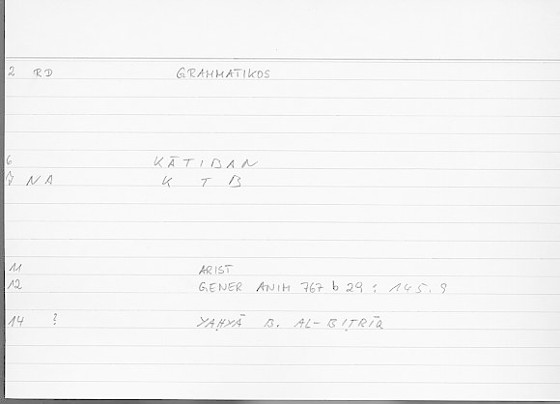 2 RD GRAMMATIKOS
6 KĀTIBAN
7 NA K T B
11 ARIST
12 GENER ANIM 767 b 29 : 145.9
14 ? YAḤYĀ B. AL-BIṬRĪQ